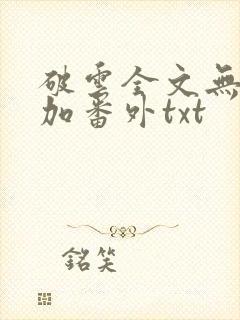 破雲全文無
加番外txt
銘笑